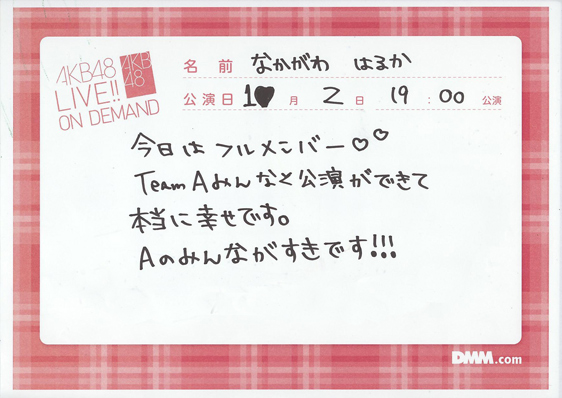 AKB48
LIVE!!
ON DEMAND
AKB
48
名前 なかがわ はるか
公演日 1♥月 2日 19:00 公演
今日はフルメンバー♡♡
Team Aみんなと公演ができて
本当に幸せです。
Aのみんながすきです!!!
DMM.com